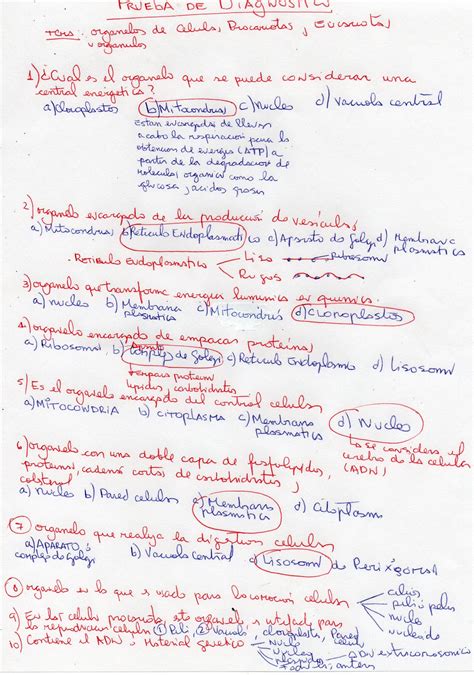 PRUEBA DE DIAGNOSTICO
Tema: organelos de Celulas, Procariotas y Eucariotas
y organulos
1) ¿Cual es el organelo que se puede considerar una
central energetica?
a) Cloroplastos b) Mitocondrias c) Nucleo d) Vacuola central
Estan encargadas de llevar
a cabo la respiracion para la
obtencion de energia (ATP) a
partir de la degradacion de
moleculas organicas como la
glucosa, acidos grasos
2) organelo encargado de la produccion de vesiculas
a) Mitocondrias b) Reticulo Endoplasmatico c) Aparato de Golgi d) Membrana
plasmatica
. Reticulo Endoplasmatico Liso Ribosomas
Rugoso
3) organelo que transforma energia luminica en quimica.
a) nucleo b) Membrana c) Mitocondrias d) Cloroplastos
plasmatica
4) organelo encargado de empacar proteinas
a) Ribosomas b) Complejo de Golgi c) Reticulo Endoplasm d) Lisosoma
empaca proteinas
lipidos, carbohidratos
5) Es el organelo encargado del control celular
a) MITOCONDRIA b) CITOPLASMA c) Membrana d) Nucleo
plasmatica
se considera el
cerebro de la celula
(ADN)
6) organelo con una doble capa de fosfolipidos,
proteinas, cadenas cortas de carbohidratos y
colesterol
a) nucleo b) Pared celular c) Membrana d) Citoplasma
plasmatica
7) organelo que realiza la digestion celular
a) APARATO o b) Vacuola central c) Lisosoma d) Perixisoma
complejo de Golgi
8) organelo es lo que es usado para locomocion celular
cilios
pili o pelos
nucleo
nucleoide
9) En las celulas procariotas este organelo es utilizado para
la reproduccion celular Pili, Vacuola, cloroplastos, Pared
celular
10) Contiene el ADN y Material genetico
Nucleo
ADN extracromosomico